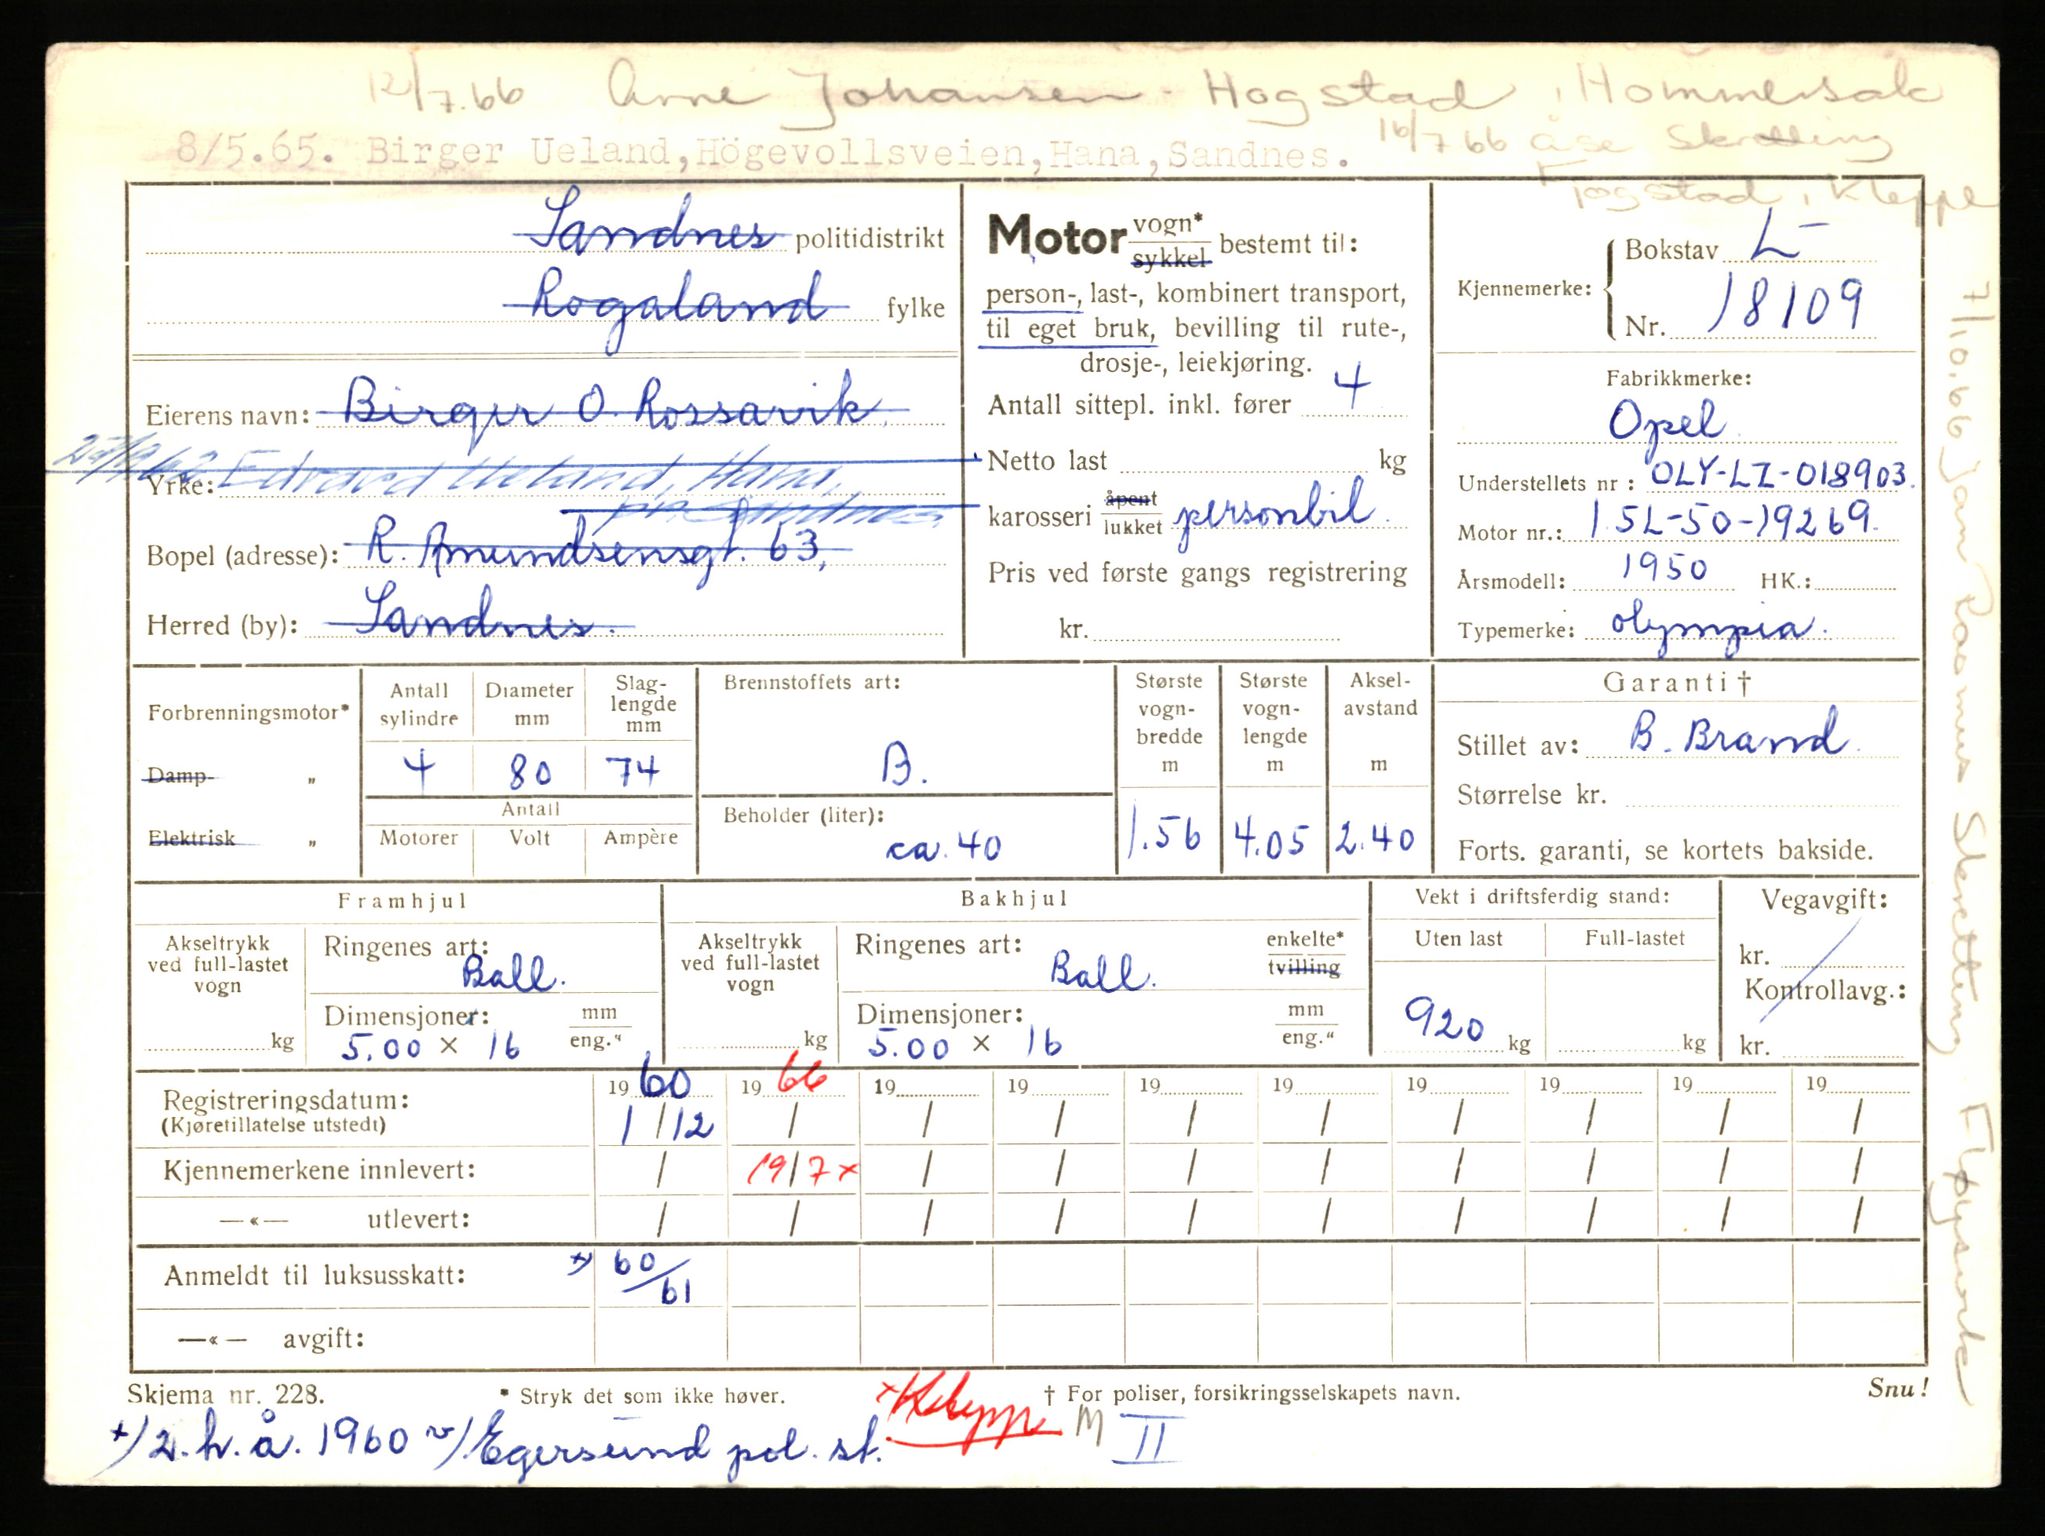 12/7.66 Arne Johansen Hogstad, Hommersak
8/5.65. Birger Ueland,Högevollsveien,Hana,Sandnes.
16/7 66 Åse Skretting
Fogstad, Kleppe
Sandnes politidistrikt
Rogaland fylke
Eierens navn: Birger O. Rossavik
Edvard Ueland, Hana,
Yrke:
pr. Sandnes
Bopel (adresse): R. Amundsensgt. 63,
Herred (by): Sandnes.
Motor vogn* sykkel bestemt til:
person-, last-, kombinert transport,
til eget bruk, bevilling til rute-,
drosje-, leiekjøring.
Antall sittepl. inkl. fører 4
Netto last kg
karosseri åpent lukket personbil
Pris ved første gangs registrering
kr.
Kjennemerke: Bokstav L-
Nr. 18109
Fabrikkmerke:
Opel
Understellets nr : OLY-LZ-018903.
Motor nr.: 1.5L-50-19269.
Årsmodell: 1950 HK.:
Typemerke: Olympia.
Forbrenningsmotor*
Damp- "
Elektrisk "
Antall sylindre Diameter mm Slag-lengde mm
4 80 74
Antall
Motorer Volt Ampère
Brennstoffets art:
B.
Beholder (liter):
ca. 40
Største vogn-bredde m
1.56
Største vogn-lengde m
4.05
Aksel-avstand m
2.40
Garanti †
Stillet av: B. Brand
Størrelse kr.
Forts. garanti, se kortets bakside.
Framhjul
Akseltrykk ved full-lastet vogn
kg
Ringenes art: Ball.
Dimensjoner: mm eng."
5.00 × 16
Bakhjul
Akseltrykk ved full-lastet vogn
kg
Ringenes art: Ball. enkelte* tvilling
Dimensjoner: mm eng."
5.00 × 16
Vekt i driftsferdig stand:
Uten last Full-lastet
920 kg kg
Vegavgift:
kr.
Kontrollavg.:
kr.
19 60 19 66 19 19 19 19 19 19 19 19
Registreringsdatum: 1/12 / / / / / / / / /
(Kjøretillatelse utstedt)
Kjennemerkene innlevert: / 19/7 x / / / / / / / /
—«— utlevert: / / / / / / / / / /
Anmeldt til luksusskatt: x) 60/61
—«— avgift:
Skjema nr. 228. * Stryk det som ikke høver. † For poliser, forsikringsselskapets navn. Snu!
x Kleppe M II
x) 2. h. å. 1960 Egersund pol. st.
7/10.66 Jan Rasmus Skretting Fløysvik